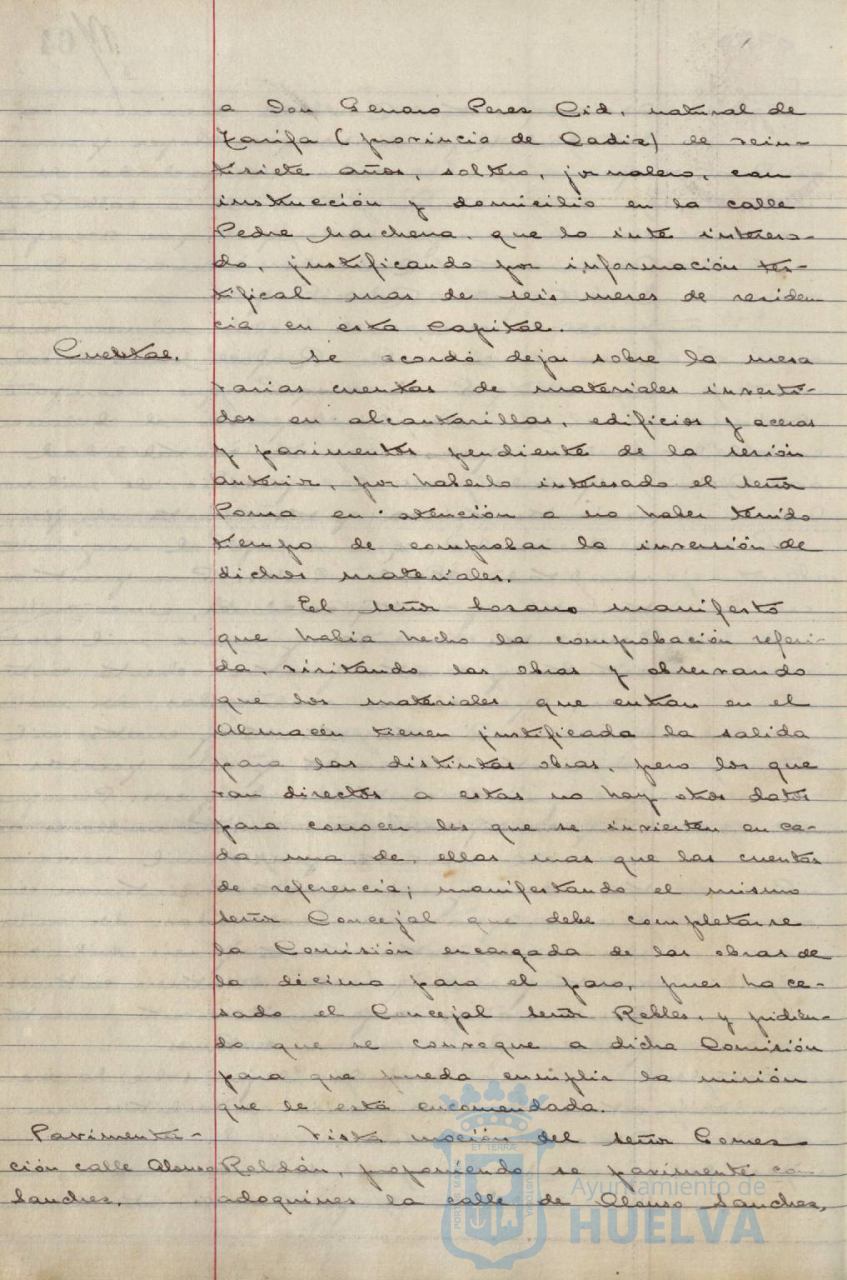 a Don Genaro Perez Cid, natural de
Tarifa (provincia de Cadiz) de vein-
tisiete años, soltero, jornalero, con
instrucción y domicilio en la calle
Pedre Marchena, que lo inte interesa-
do, justificando por información tes-
tifical mas de seis meses de residen-
cia en esta Capital.
Cuentas.
Se acordó dejar sobre la mesa
varias cuentas de materiales inverti-
dos en alcantarillas, edificios y aceras
y pavimentos, pendiente de la sesión
anterior, por haberlo interesado el señor
Ponsa en atención a no haber tenido
tiempo de comprobar la inversión de
dichos materiales.
El señor Lozano manifestó
que habia hecho la comprobación referi-
da, visitando las obras y observando
que los materiales que entran en el
Almacén tienen justificada la salida
para las distintas obras, pero los que
van directos a estas no hay otros datos
para conocer los que se invierten en ca-
da una de ellas mas que las cuentas
de referencia; manifestando el mismo
señor Concejal que debe completarse
la Comisión encargada de las obras de
la décima para el paro, pues ha ce-
sado el Concejal señor Robles, y pidien-
do que se convoque a dicha Comisión
para que pueda cumplir la misión
que le está encomendada.
Pavimenta-
ción calle Alonso
Sanchez.
Vista moción del señor Gomez
Roldán, proponiendo se pavimente con
adoquines la calle de Alonso Sanchez,
Ayuntamiento de
HUELVA